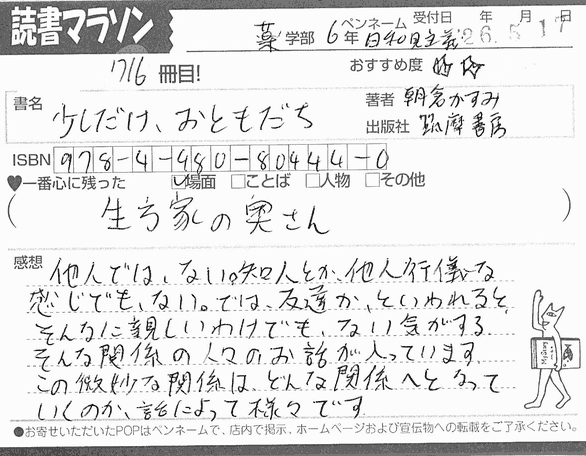 読書マラソン
薬学部 6年 ペンネーム 日和見主義 受付日 年 月 日
'26.5.17
1716冊目!
おすすめ度 ☆☆
書名 少しだけ、おともだち
著者 朝倉かすみ
出版社 筑摩書房
ISBN 978-4-480-80444-0
♥一番心に残った ☑場面 □ことば □人物 □その他
(生方家の奥さん)
感想
他人では、ない。知人とか、他人行儀な
感じでも、ない。では、友達か、といわれると、
そんなに親しいわけでも、ない気がする
そんな関係の人々のお話が入っています。
この微妙な関係は、どんな関係へとなって
いくのか、話によって様々です
●お寄せいただいたPOPはペンネームで、店内で掲示、ホームページおよび宣伝物への転載をご了承ください。